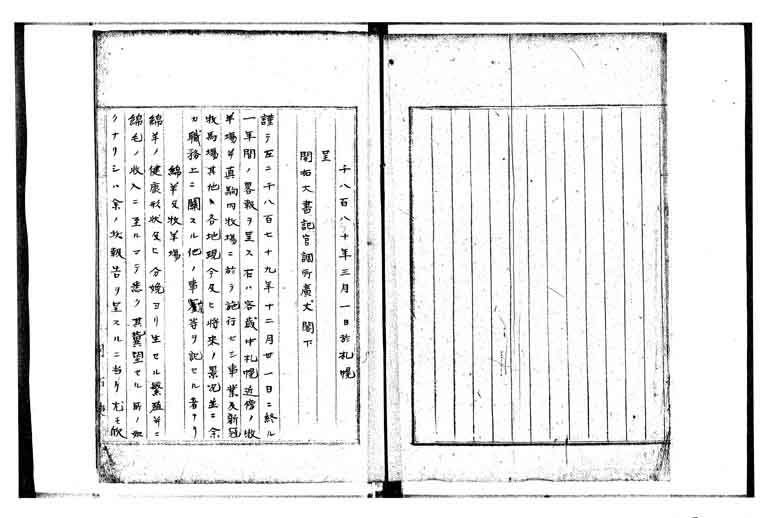 千八百八十年三月一日於札幌
呈
開拓大書記官調所廣丈閣下
謹テ至二千八百七十九年十二月廿一日ニ終ル
一年間ノ畧報ヲ呈ス右ハ客歳中札幌近傍ノ牧
羊場并真駒内牧場ニ於テ施行セシ事業及新冠
牧馬場其他各地現今及ヒ将来ノ景况並ニ余
カ職務上ニ關スル他ノ事等ヲ記セル者ナリ
綿羊及牧羊場
綿羊ノ健康形状及ヒ分娩ヨリ生セル繁殖并ニ
綿毛ノ收入ニ至ルマテ悉ク其冀望セル所ノ如
クナリシハ余ノ報告ヲ呈スルニ当リ尤モ欣